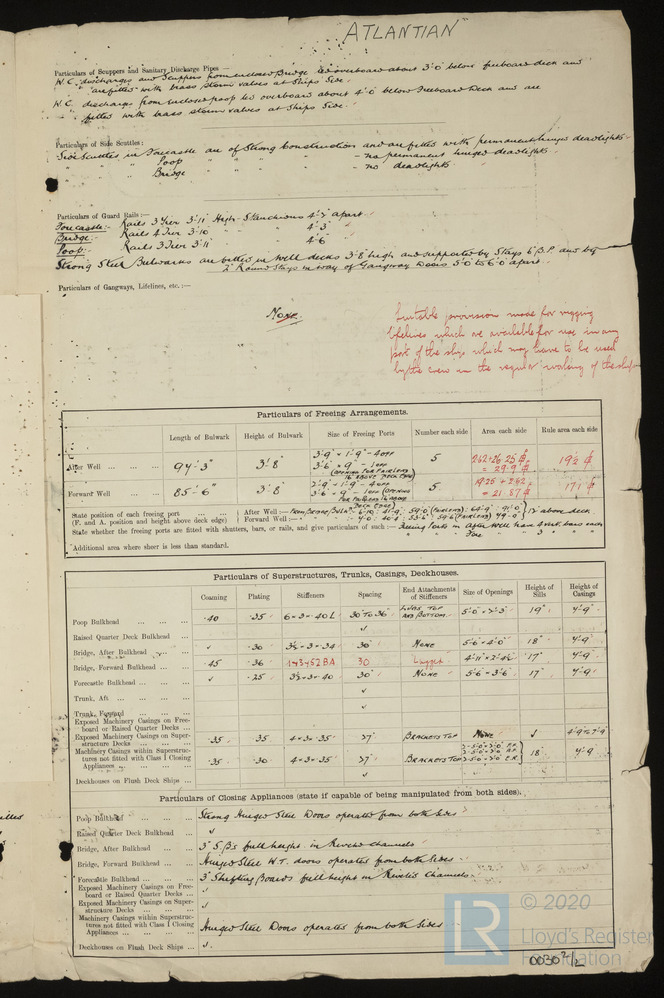 "ATLANTIAN"
Particulars of Scuppers and Sanitary Discharge Pipes —
W.C. discharges and Scuppers from enclosed Bridge led overboard about 3'.0 below freeboard deck and
are fitted with brass storm valves at Ships Side.
W.C. discharge from enclosed poop led overboard about 4'.0 below Freeboard Deck and are
fitted with brass storm valves at Ships Side.
Particulars of Side Scuttles:
Side Scuttles in Forecastle are of Strong Construction and are fitted with permanent hinged deadlights.
" " Poop " " " - no permanent hinged deadlights.
" " Bridge " " " - no deadlights.
Particulars of Guard Rails:—
Forecastle:- Rails 3 Tier 3'.11" High - Stanchions 4'.7" apart
Bridge:- Rails 4 Tier 3'.10" " " 4'.3"
Poop:- Rails 3 Tier 3'.11" " " 4'.6"
Strong Steel Bulwarks are fitted in Well decks 3'.8" high and supported by Stays 6" B.P. and by
2" Round Stays in way of Gangway Doors 5'.0 to 6'.0 apart.
Particulars of Gangways, Lifelines, etc.:—
None.
Suitable provision made for rigging
lifelines which are available for use in any
part of the ship which may have to be used
by the crew in the regular working of the ship
Particulars of Freeing Arrangements.
Length of Bulwark Height of Bulwark Size of Freeing Ports Number each side Area each side Rule area each side
After Well 94'-3" 3'.8" 3'.9" × 1'.9" - 4 OFF 5 19.2
3'.6" × 9" - 1 OFF
(OPENING FOR FAIRLEAD
16" ABOVE DECK EDGE)
= 29.9
Forward Well 85'-6" 3'.8" 5 17.1
3'.6 × 9" - 1 OFF (OPENING
DECK EDGE)
= 21.87
State position of each freeing port
(F. and A. position and height above deck edge)
After Well:—
Forward Well:—
12" above deck
State whether the freeing ports are fitted with shutters, bars, or rails, and give particulars of such:—
Additional area where sheer is less than standard.
Particulars of Superstructures, Trunks, Casings, Deckhouses.
Coaming Plating Stiffeners Spacing End Attachments of Stiffeners Size of Openings Height of Sills Height of Casings
Poop Bulkhead .40 .35 6×3×.40 L 30 TO 36" LUGS TOP AND BOTTOM 5'.0 × 2'.3" 19" 7'.9"
Raised Quarter Deck Bulkhead ✓
Bridge, After Bulkhead ✓ .30 30" NONE 5'.6 × 4'.0" 18" 7'.9"
Bridge, Forward Bulkhead .45 .36 30 Lugged 17" 7'.9"
Forecastle Bulkhead ✓ .25 30" NONE 5'.6 × 3'.6 17" 7'.9"
Trunk, Aft ✓
Trunk, Forward ✓
Exposed Machinery Casings on Freeboard or Raised Quarter Decks
Exposed Machinery Casings on Superstructure Decks .35 .35 4×3×.35 27" BRACKETS TOP NONE ✓
Machinery Casings within Superstructures not fitted with Class I Closing Appliances .35 .30 4×3×.35 27" BRACKETS TOP 18" 7'.9
Deckhouses on Flush Deck Ships ✓
Particulars of Closing Appliances (state if capable of being manipulated from both sides).
Poop Bulkhead Strong Hinged Steel Doors operated from both Sides
Raised Quarter Deck Bulkhead ✓
Bridge, After Bulkhead 3" S.Bs full height in Riveted channels
Bridge, Forward Bulkhead Hinged Steel W.T. doors operated from both Sides
Forecastle Bulkhead 3" Shifting Boards full height in Riveted Channels
Exposed Machinery Casings on Freeboard or Raised Quarter Decks ✓
Exposed Machinery Casings on Superstructure Decks ✓
Machinery Casings within Superstructures not fitted with Class I Closing Appliances Hinged Steel Doors operated from both Sides
Deckhouses on Flush Deck Ships ✓
LR
© 2020
Lloyd's Register
Foundation